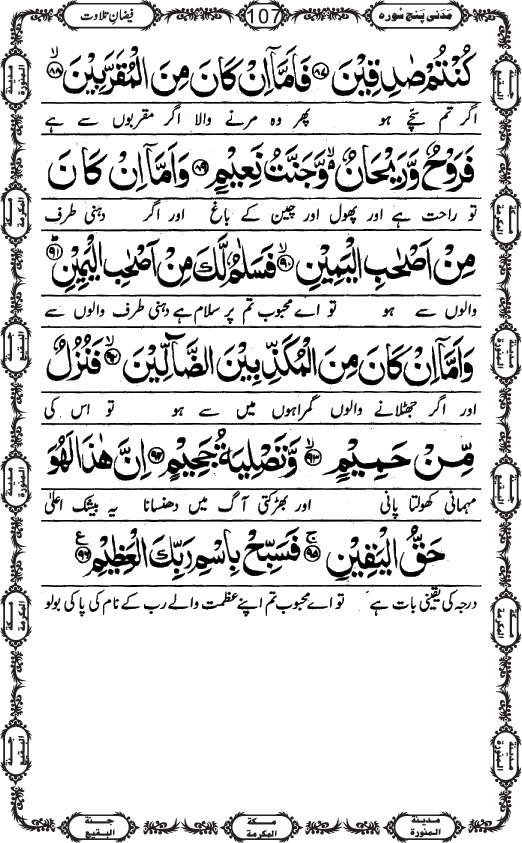 مَدَنی پَنج سُورہ 107 فیضانِ تلاوت
كُنْتُمْ صٰدِقِیْنَ ﴿۸۷﴾ فَاَمَّاۤ اِنْ كَانَ مِنَ الْمُقَرَّبِیْنَ ﴿ۙ۸۸﴾
اگر تم سچّے ہو پھر وہ مرنے والا اگر مقربوں سے ہے
فَرَوْحٌ وَّ رَیْحَانٌ ۙ۬ وَّ جَنَّتُ نَعِیْمٍ ﴿۸۹﴾ وَ اَمَّاۤ اِنْ كَانَ
تو راحت ہے اور پھول اور چین کے باغ اور اگر دہنی طرف
مِنْ اَصْحٰبِ الْیَمِیْنِ ﴿ۙ۹۰﴾ فَسَلٰمٌ لَّكَ مِنْ اَصْحٰبِ الْیَمِیْنِ ﴿ؕ۹۱﴾
والوں سے ہو تو اے محبوب تم پر سلام ہے دہنی طرف والوں سے
وَ اَمَّاۤ اِنْ كَانَ مِنَ الْمُكَذِّبِیْنَ الضَّآلِّیْنَ ﴿ۙ۹۲﴾ فَنُزُلٌ
اور اگر جھٹلانے والوں گمراہوں میں سے ہو تو اس کی
مِّنْ حَمِیْمٍ ﴿ۙ۹۳﴾ وَّ تَصْلِیَةُ جَحِیْمٍ ﴿۹۴﴾ اِنَّ هٰذَا لَهُوَ
مہمانی کھولتا پانی اور بھڑکتی آگ میں دھنسانا یہ بیشک اعلیٰ
حَقُّ الْیَقِیْنِ ﴿ۚ۹۵﴾ فَسَبِّحْ بِاسْمِ رَبِّكَ الْعَظِیْمِ ﴿۹۶﴾ ع
درجہ کی یقینی بات ہے تو اے محبوب تم اپنے عظمت والے رب کے نام کی پاکی بولو
مدینۃ المنورۃ
جنۃ البقیع
مکۃ المکرمۃ
مکۃ المکرمۃ
جنۃ البقیع
مدینۃ المنورۃ
مدینۃ المنورۃ
جنۃ البقیع
مکۃ المکرمۃ
مکۃ المکرمۃ
جنۃ البقیع
مدینۃ المنورۃ
جنۃ البقیع
مکۃ المکرمۃ
مدینۃ المنورۃ